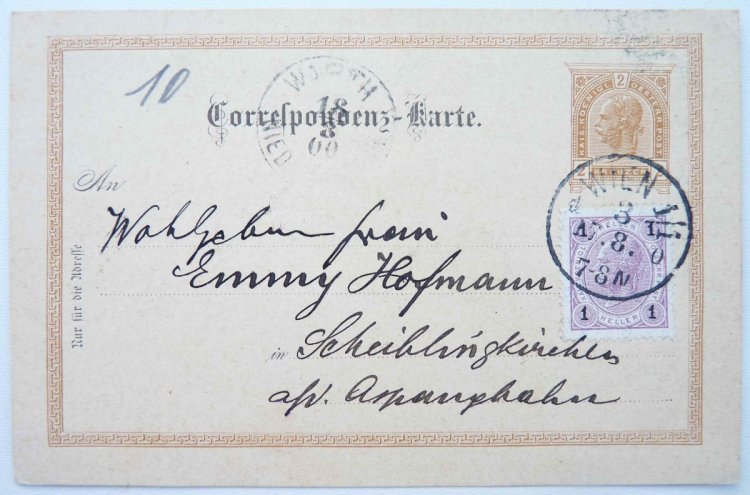 10
Correspondenz-Karte.
2
KAIS. KOENIGL. OESTERR. POST
2
KREUZER
WIEN
3
8.
7-8 N
18
8
00
An
Wohlgeboren Frau
Emmy Hofmann
in Scheiblingkirchen
a/d. Aspangbahn
Nur für die Adresse
1 1
1 HELLER 1